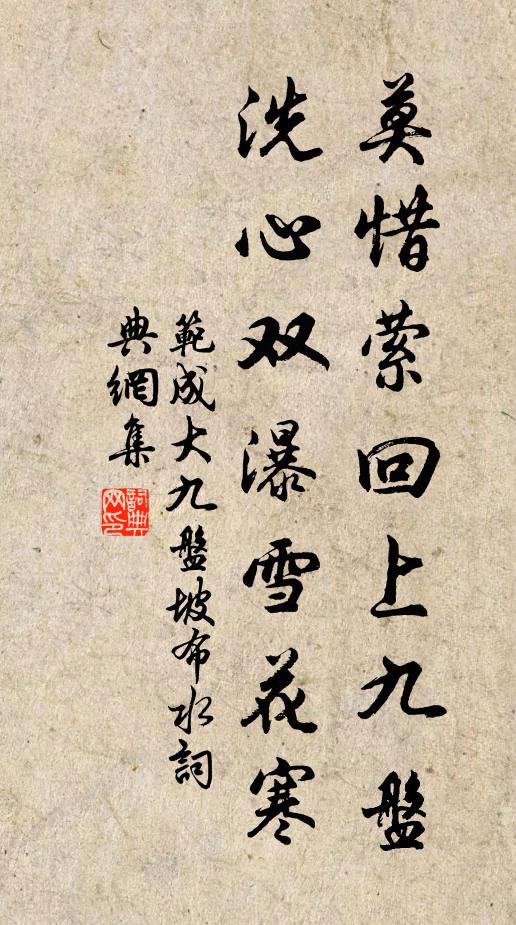 莫惜萦回上九盤
洗心双瀑雪花寒
範成大九盤坡布水詞
典網集
詞典网印